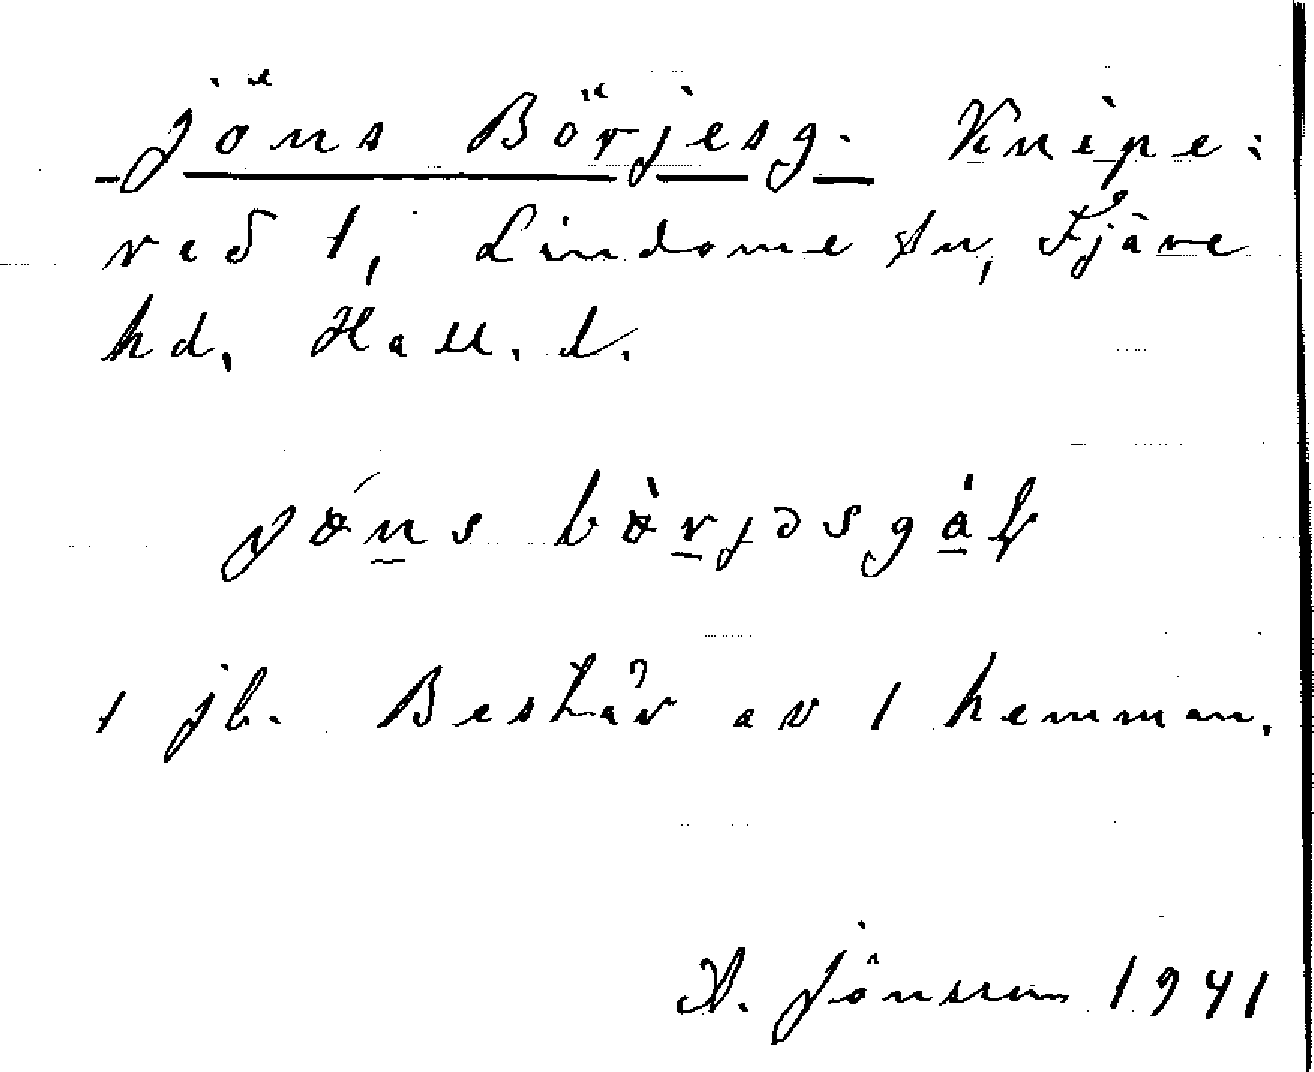 Jöns Börjesg. Knipe:
red 1, Lindome sn, Fjäre
hd, Hall. l.
jöns bö̀rjəsgáḷ
1 jb. Består av 1 hemman.
A. Jönsson 1941